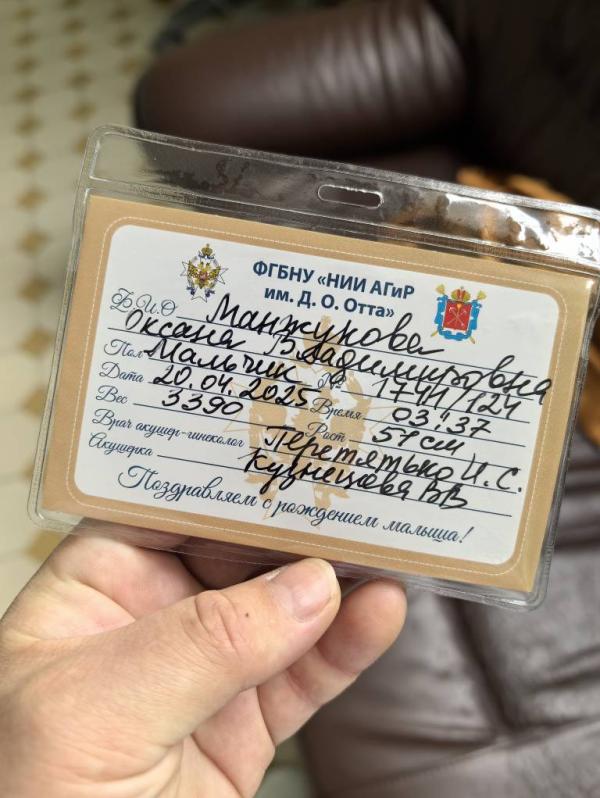 ФГБНУ «НИИ АГиР
им. Д. О. Отта»
Ф.И.О Манжукова
Оксана Владимировна
Пол Мальчик № 1741/124
Дата 20.04.2025 Время 03:37
Вес 3390 Рост 51 см
Врач акушер-гинеколог Перетятько И.С.
Акушерка Кузнецова ВВ
Поздравляем с рождением малыша!